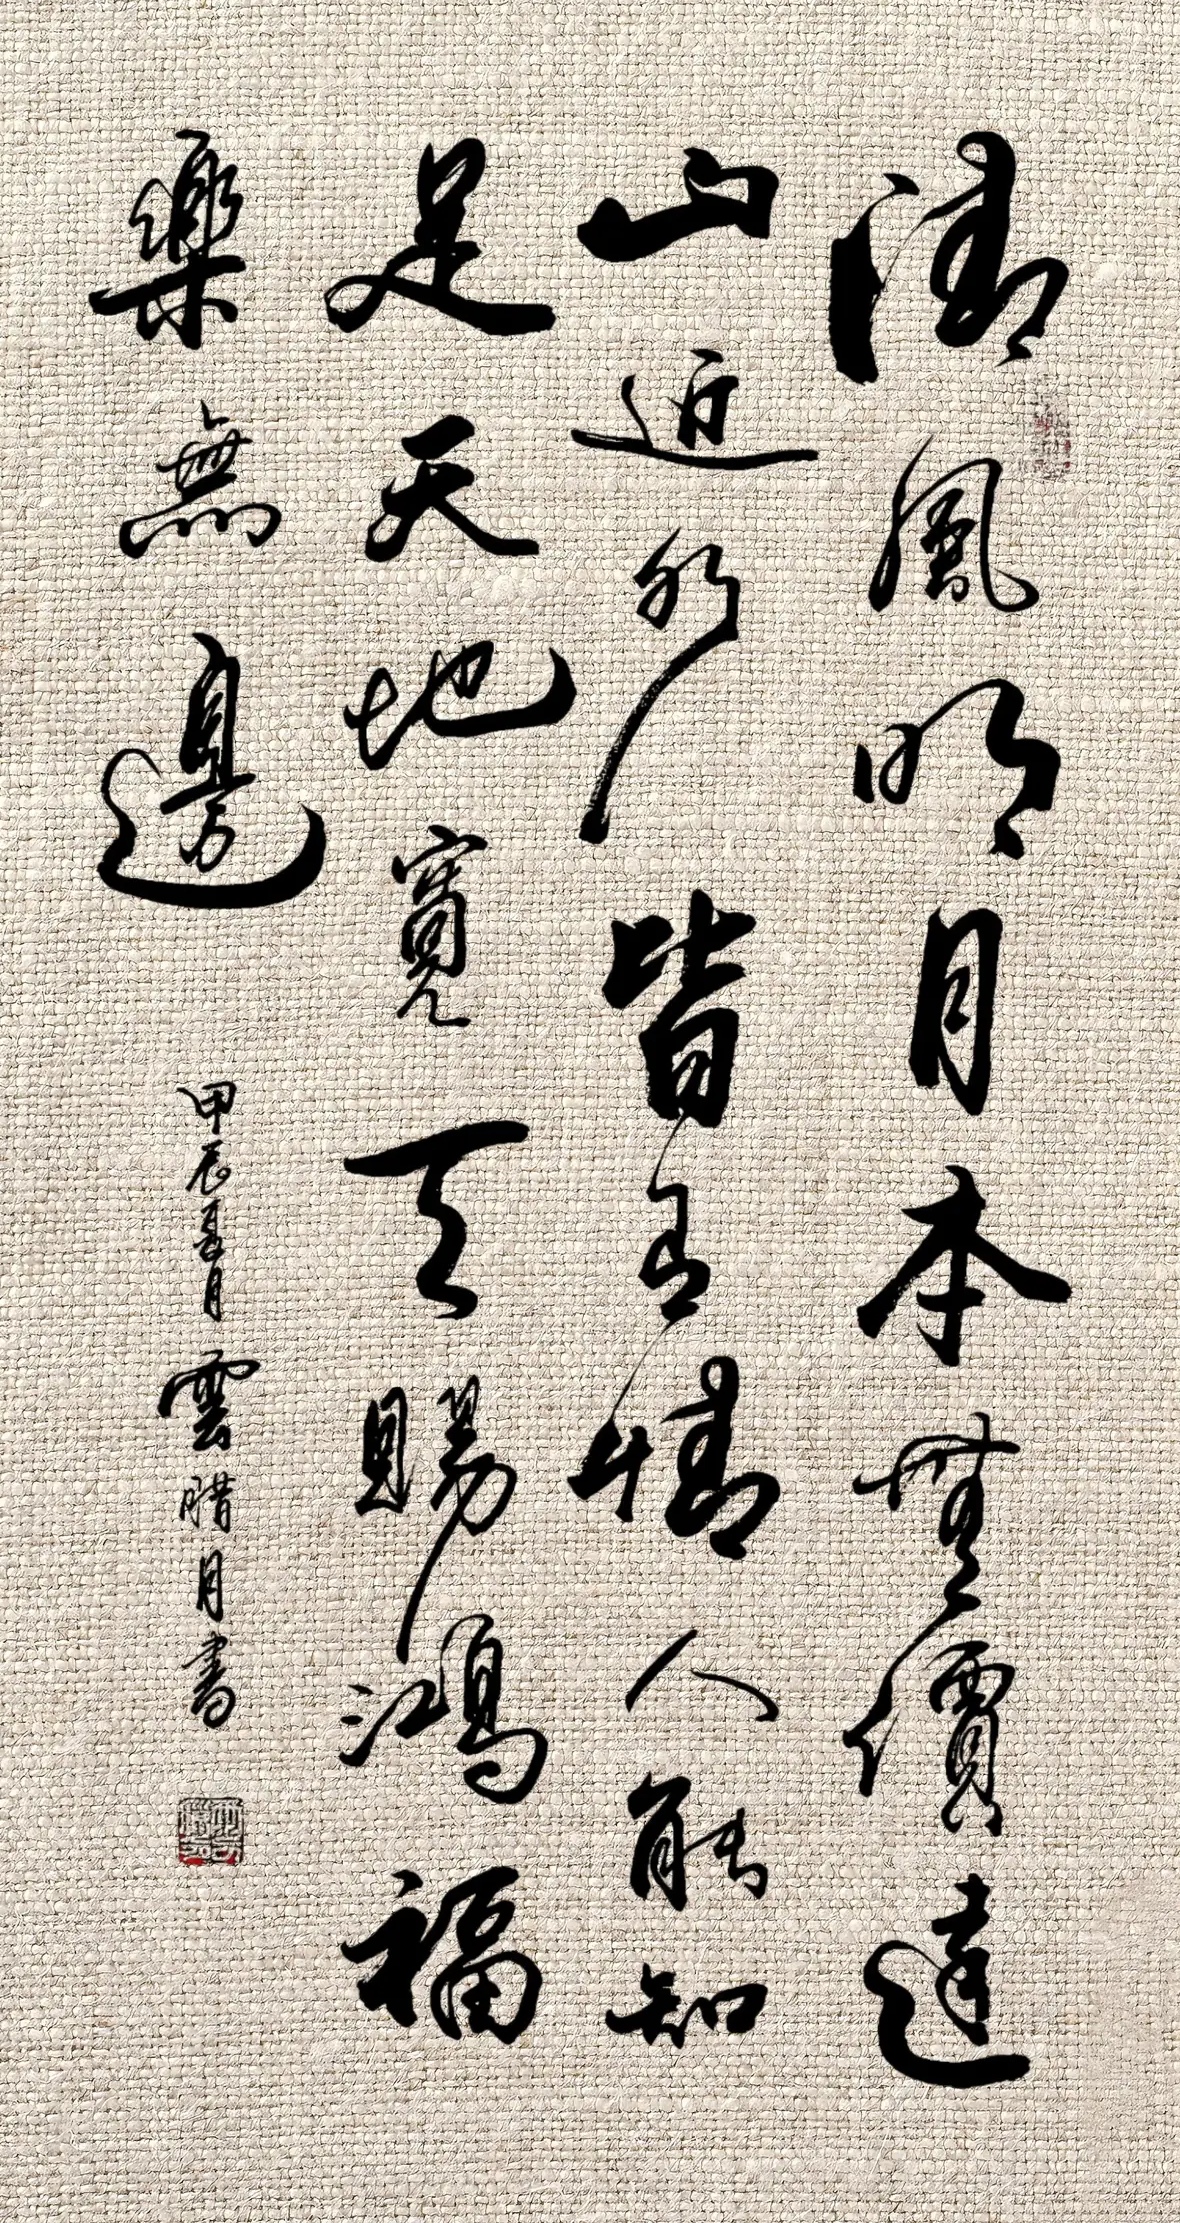 清風明月本無價遠
山近水皆有情人能知
足天地寬天賜鴻福
樂無邊
甲辰夏月雲腊月書